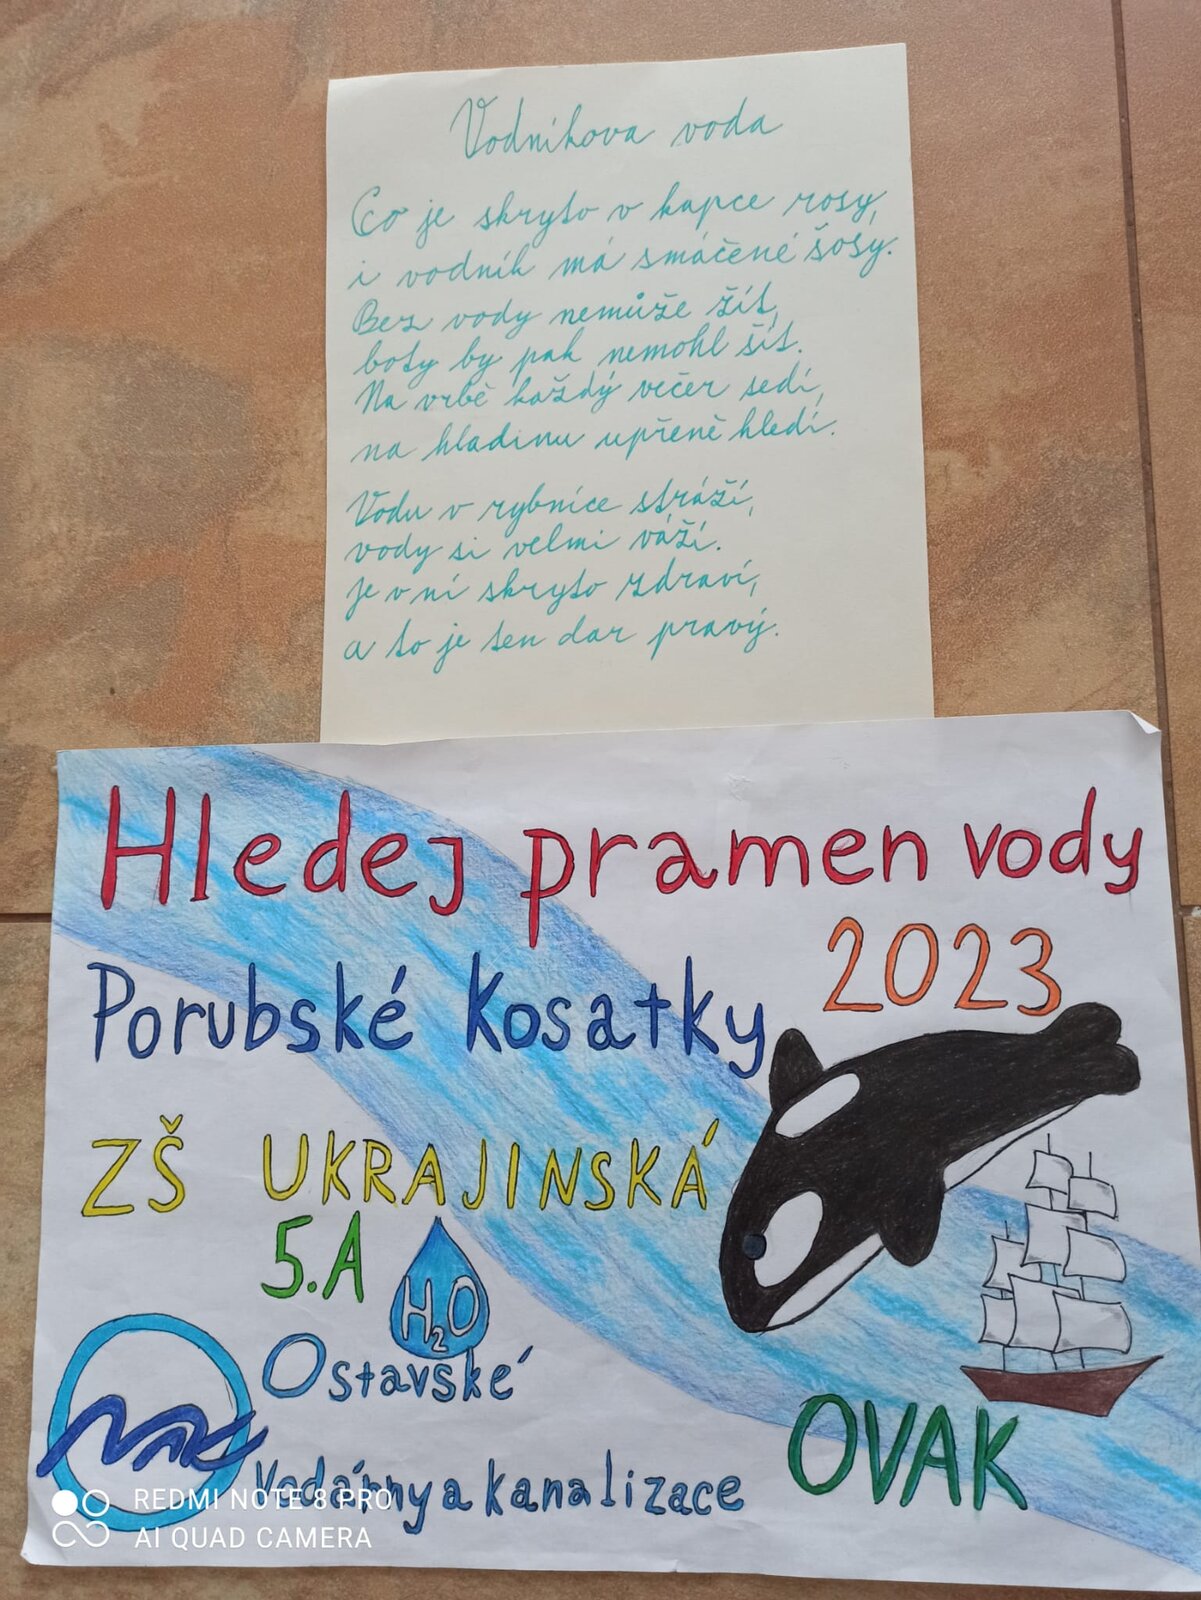 Vodníkova voda
Co je skryto v kapce rosy,
i vodník má smáčené šosy.
Bez vody nemůže žít,
boty by pak nemohl šít.
Na vrbě každý večer sedí,
na hladinu upřeně hledí.
Vodu v rybníce stráží,
vody si velmi váží.
Je v ní skryto zdraví,
a to je ten dar pravý.
Hledej pramen vody
2023
Porubské Kosatky
ZŠ UKRAJINSKÁ
5.A
H2O
Ostavské
OVAK
Vodárny a kanalizace
REDMI NOTE 8 PRO
AI QUAD CAMERA